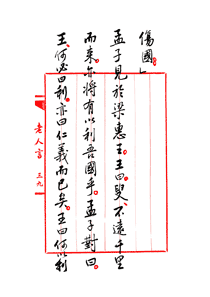 傷國」
孟子見於梁惠王。王曰。叟。不遠千里
而来。亦将有以利吾國乎。孟子對曰。
王。何必曰利。亦曰仁義而已矣。王曰何以利
老人言 三九